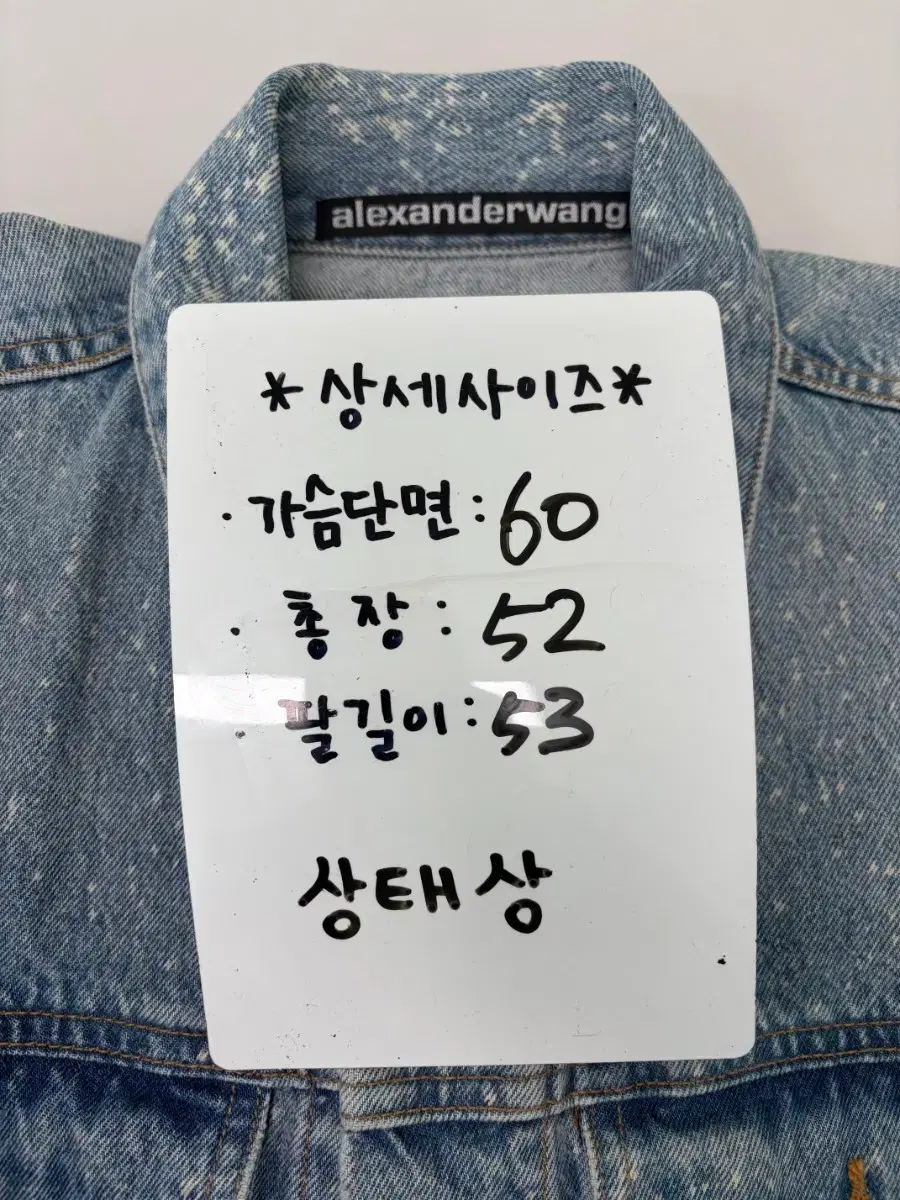 alexanderwang
*상세사이즈*
·가슴단면:60
·총장:52
·팔길이:53
상태상